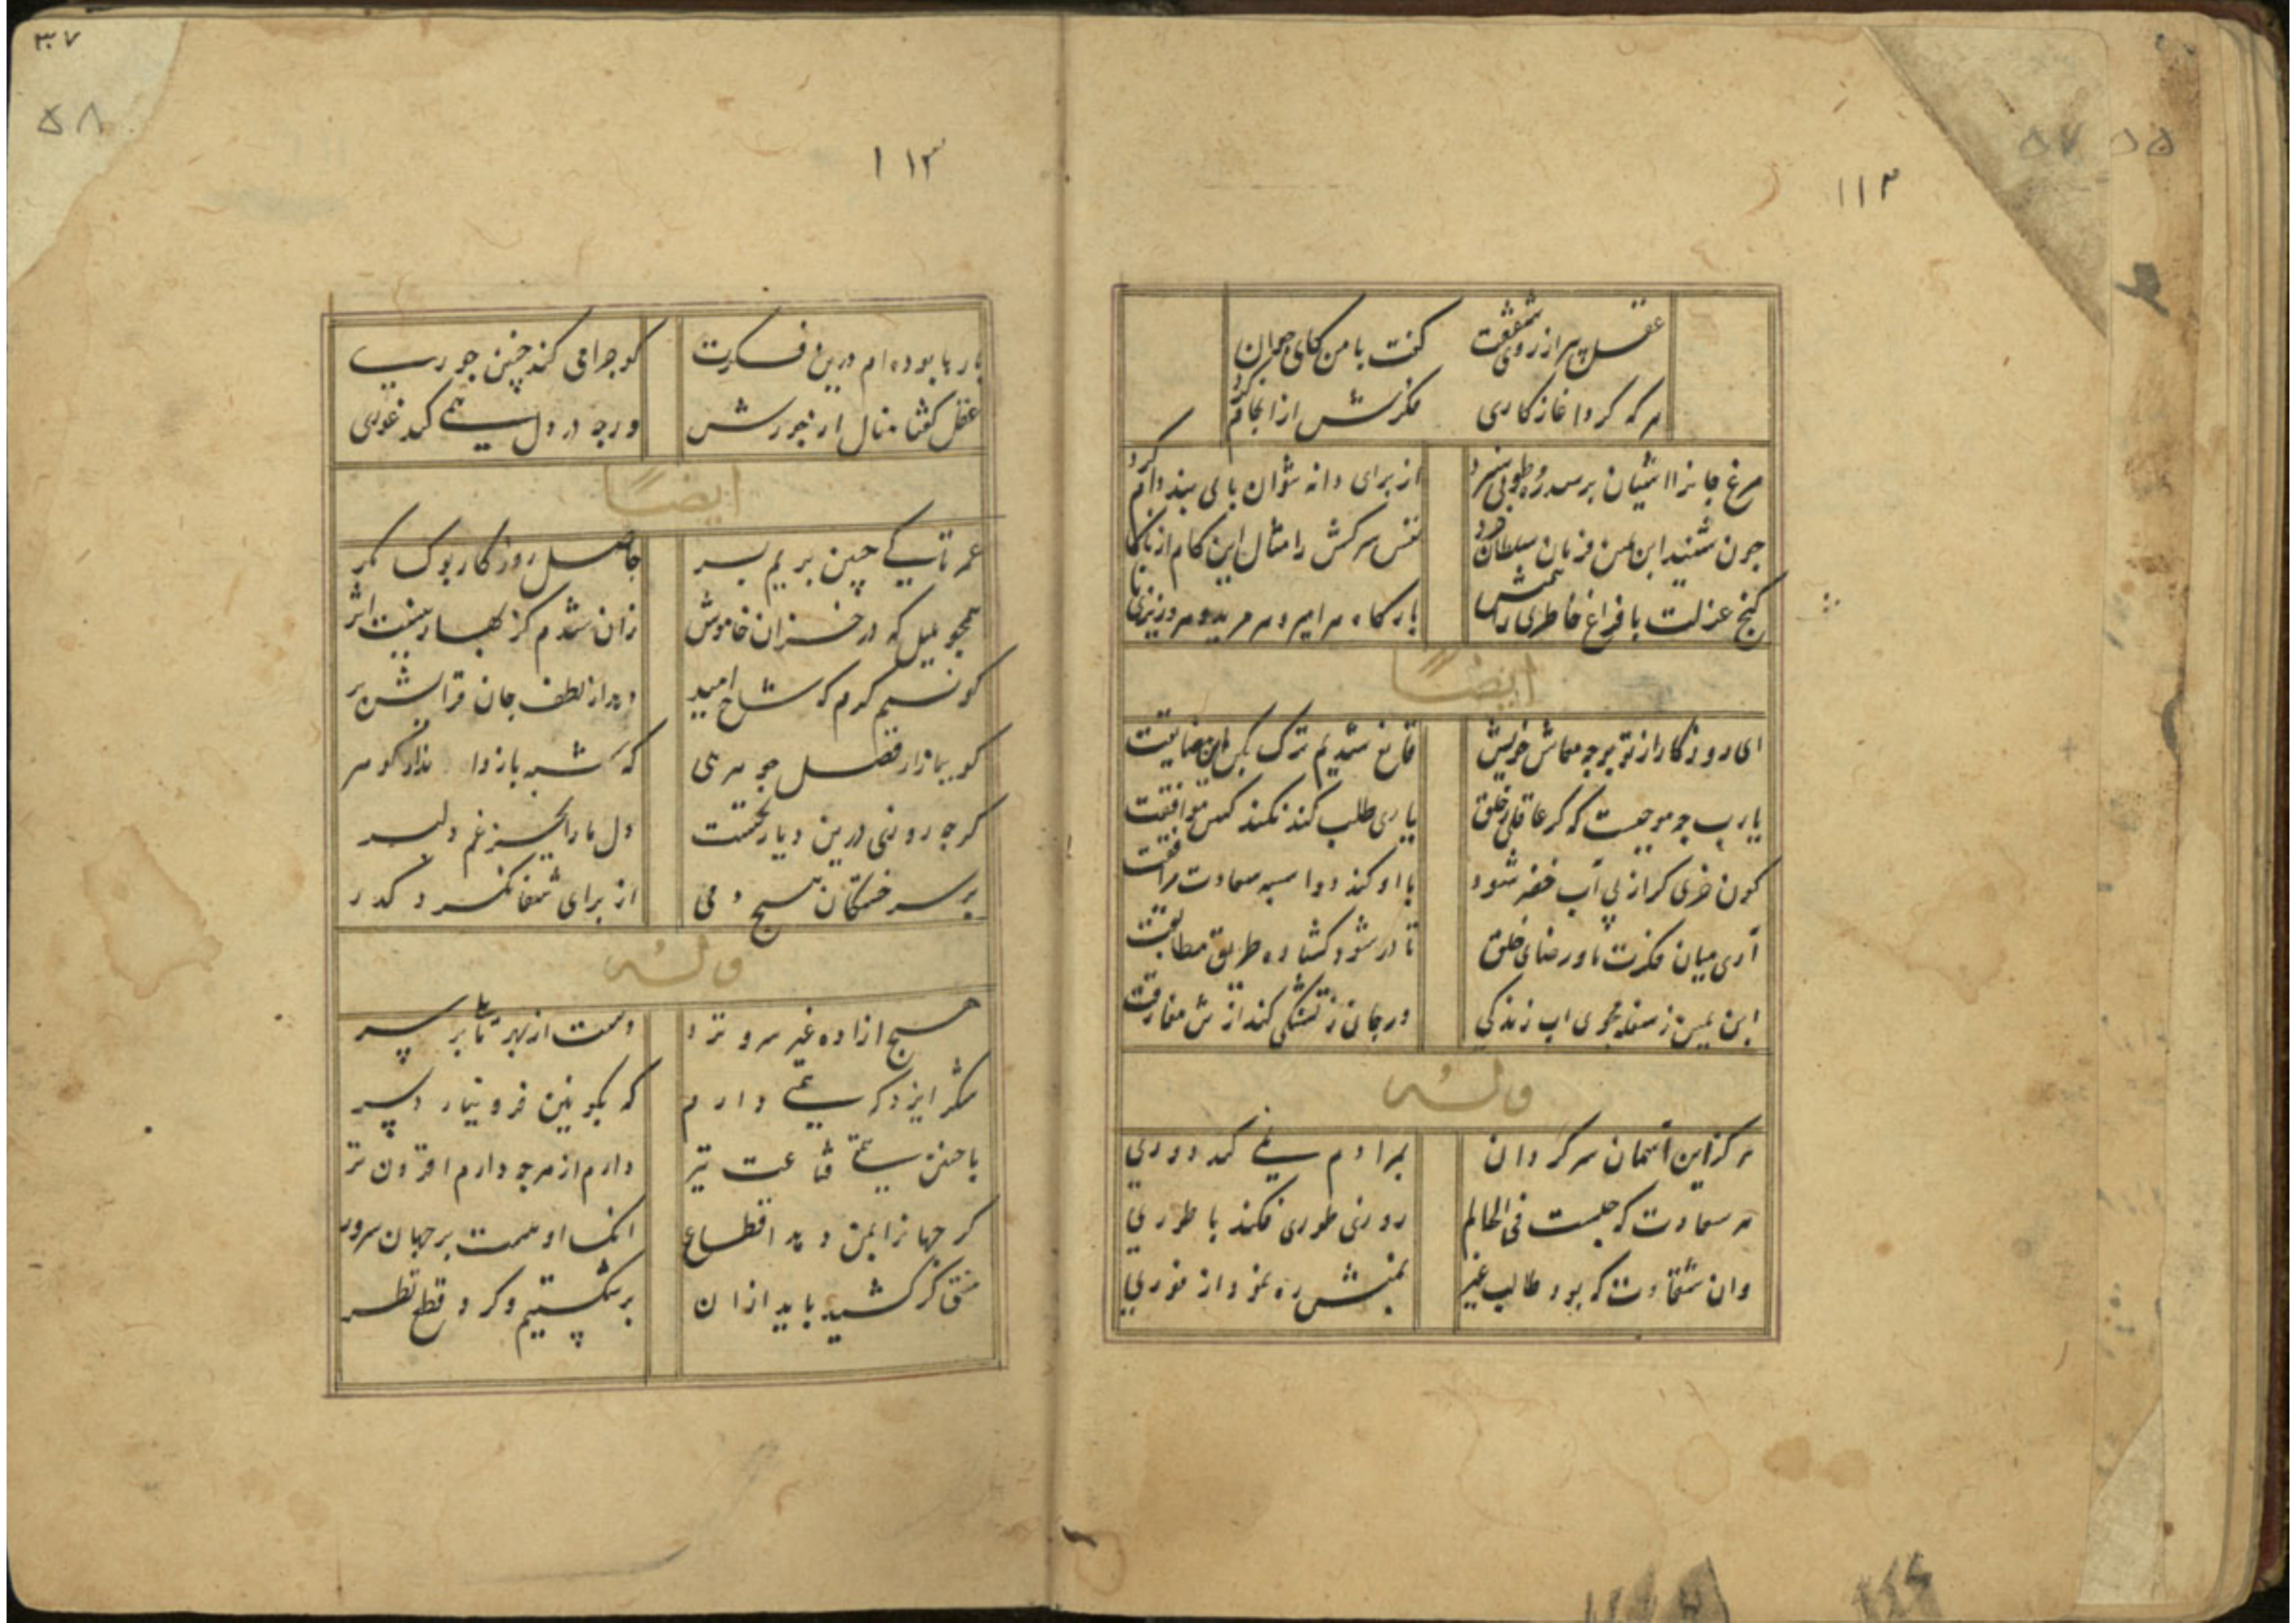 ۱۱۲
عقل پیر از روی شفقت گفت با من کای جوان
هر که کرد آغاز کاری فکرتش از انجام کرد
مرغ جانرا آشیان بر سدره و طوبی سزد از برای دانه نتوان پای بند دام کرد
چون شنید ابن یمین فرمان سلطان خرد نفس سرکش را مثال این کلام
کنج عزلت با فراغ خاطری بارگاه هر امیر و هر
ایضاً
ای روزگار از تو بوجه معاش خویش قانع شدیم ترک
یارب چه موجبست که گر عاقلی ز خلق یاری طلب کند نکند کس موافقت
کون خری گر از پی آب خضر شود با او کند دو اسبه سعادت مرافقت
آری میان فکرت ما و رضای خلق تا در شود کشاده طریق مطابقت
ابن یمین ز سفله مجوی آب زندگی ور جان ز تشنگی کند از تن مفارقت
وله
هرگز این آسمان سرگردان بمرادم نمی کند دوری
هر سعادت که جست فی الحالم روزنی طوری فکند با طوری
وان شقاوت که بود طالب غیر بمنش ره نمود از فوری
۱۱۳
۳۷
۵۸
بارها بوده ام درین فکرت کو چرا می کند چنین جوری
عقل گفتا منال از جورش ورچه در دل نمی کند غوری
ایضاً
عمر تا کی چنین بریم بسر حاصل روزگار بوک مگر
همچو بلبل که در خزان خاموش زان شدم کز بهار نیست اثر
کو نسیم کرم که شاخ امید دهد از لطف جان فزایش بر
کو ببازار فضل جوهرئی که شبه باز داند از گوهر
گرچه روزی درین دیار نخست دل ما را بجز غم دلبر
بر سر خستگان مسیح دمی از برای شفا نکرد گذر
وله
هیچ آزاده غیر سرو نزد دست از بهر تا بر سر
شکر ایزد که همتی دارم که بکونین فرو نیارد سر
با چنین همتی قناعت نیز دارم از هرچه دارم افزون تر
گر جهانرا بمن دهد اقطاع آنک او هست بر جهان سرور
منتی گر کشید باید ازان برشکستیم و کرد قطع نظر